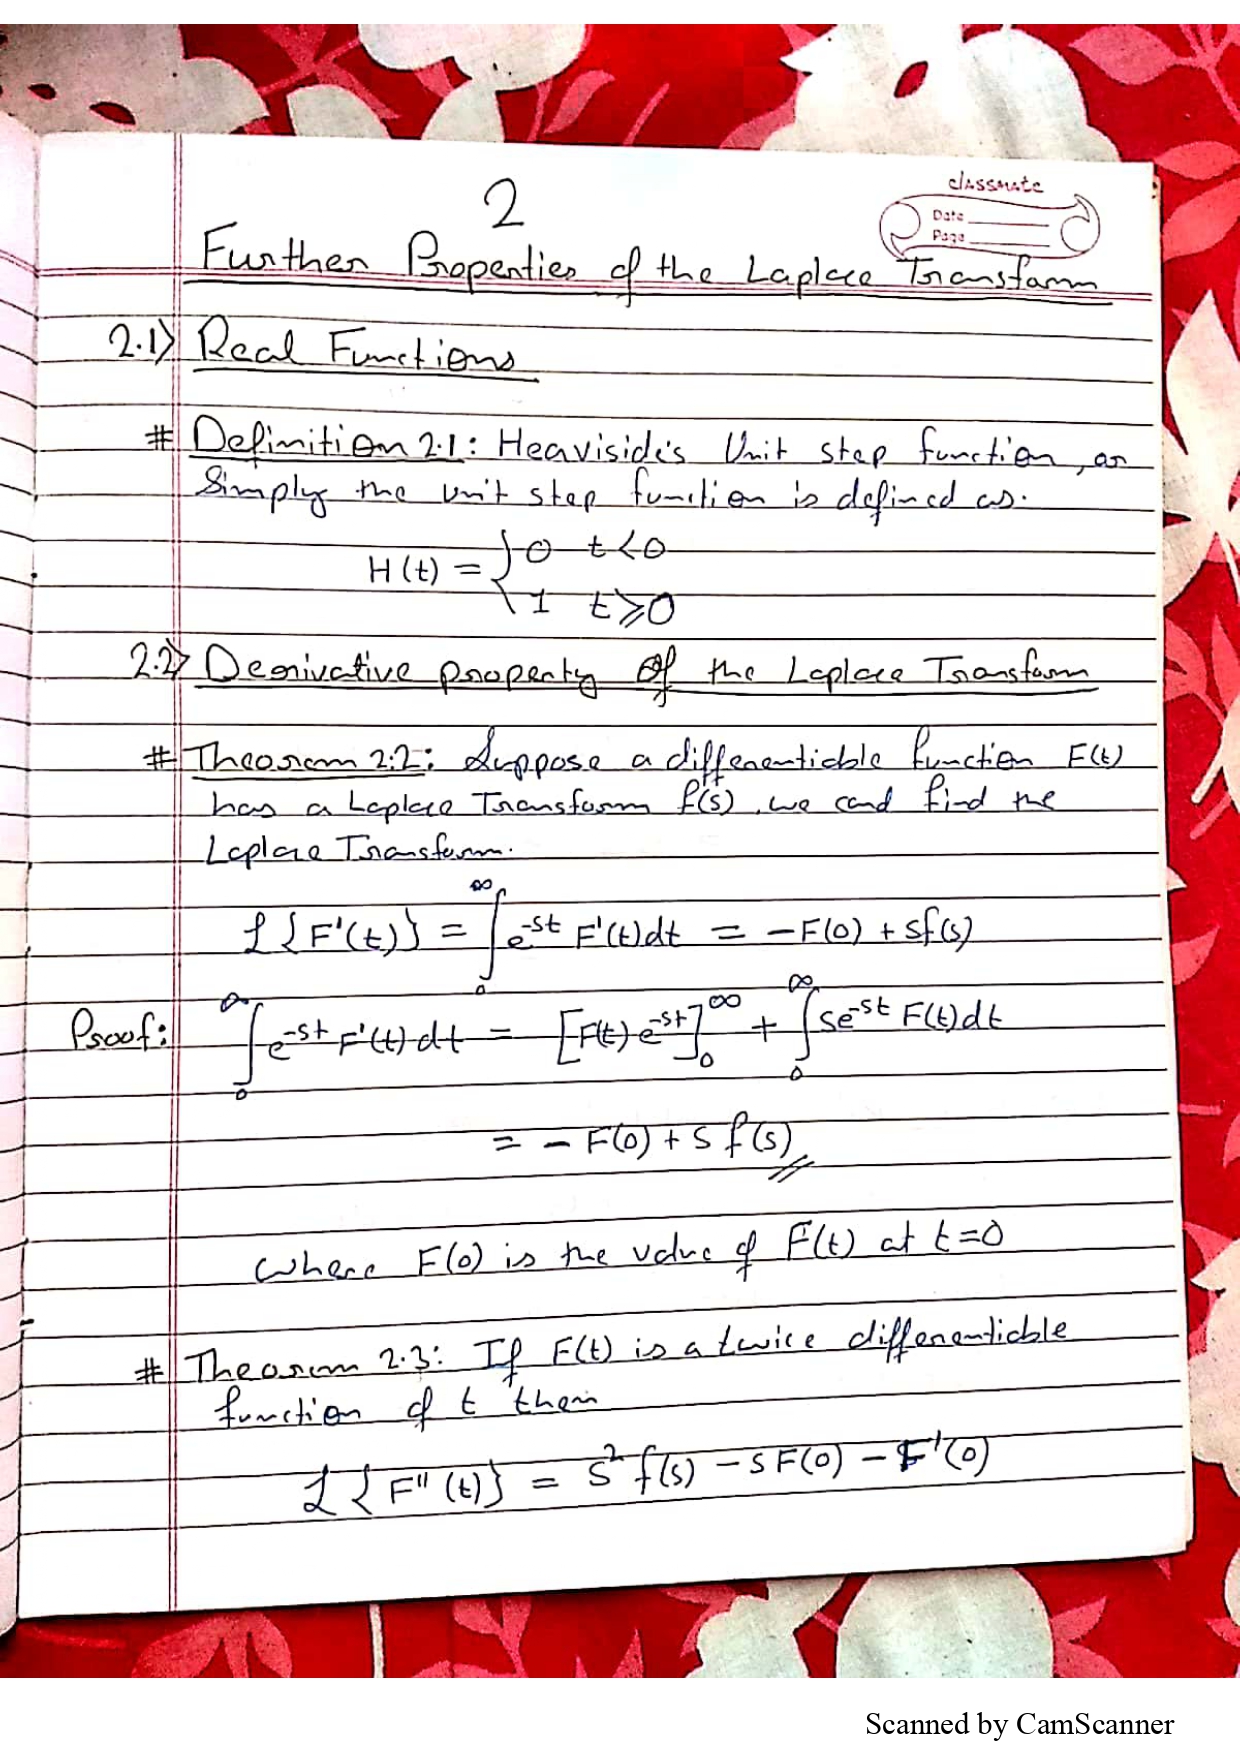 2
classmate
Date
Page
Further Properties of the Laplace Transform
2.1> Real Functions
# Definition 2.1: Heaviside's Unit step function, or
Simply the unit step function is defined as.
H(t) = { 0 t<0
1 t⩾0
2.2> Derivative property of the Laplace Transform
# Theorem 2.2: Suppose a differentiable function F(t)
has a Laplace Transform f(s), we cand find the
Laplace Transform.
ℒ{F'(t)} = ∫₀^∞ e^-st F'(t)dt = -F(0) + sf(s)
Proof: ∫₀^∞ e^-st F'(t)dt = [F(t) e^-st]₀^∞ + ∫₀^∞ se^-st F(t)dt
= - F(0) + s f(s)
where F(0) is the value of F(t) at t=0
# Theorem 2.3: If F(t) is a twice differentiable
function of t then
ℒ{F"(t)} = s² f(s) - sF(0) - F'(0)
Scanned by CamScanner